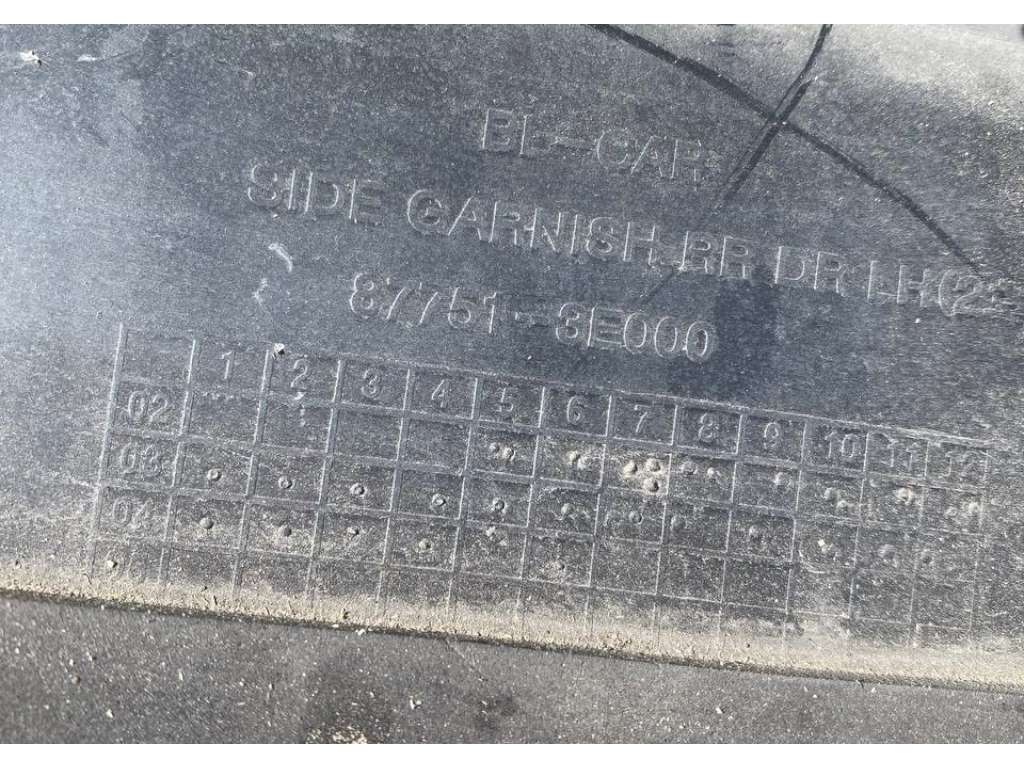 BL-CAR
SIDE GARNISH RR DR LH(2
87751-3E000
1 2 3 4 5 6 7 8 9 10 11 12
02
03
04